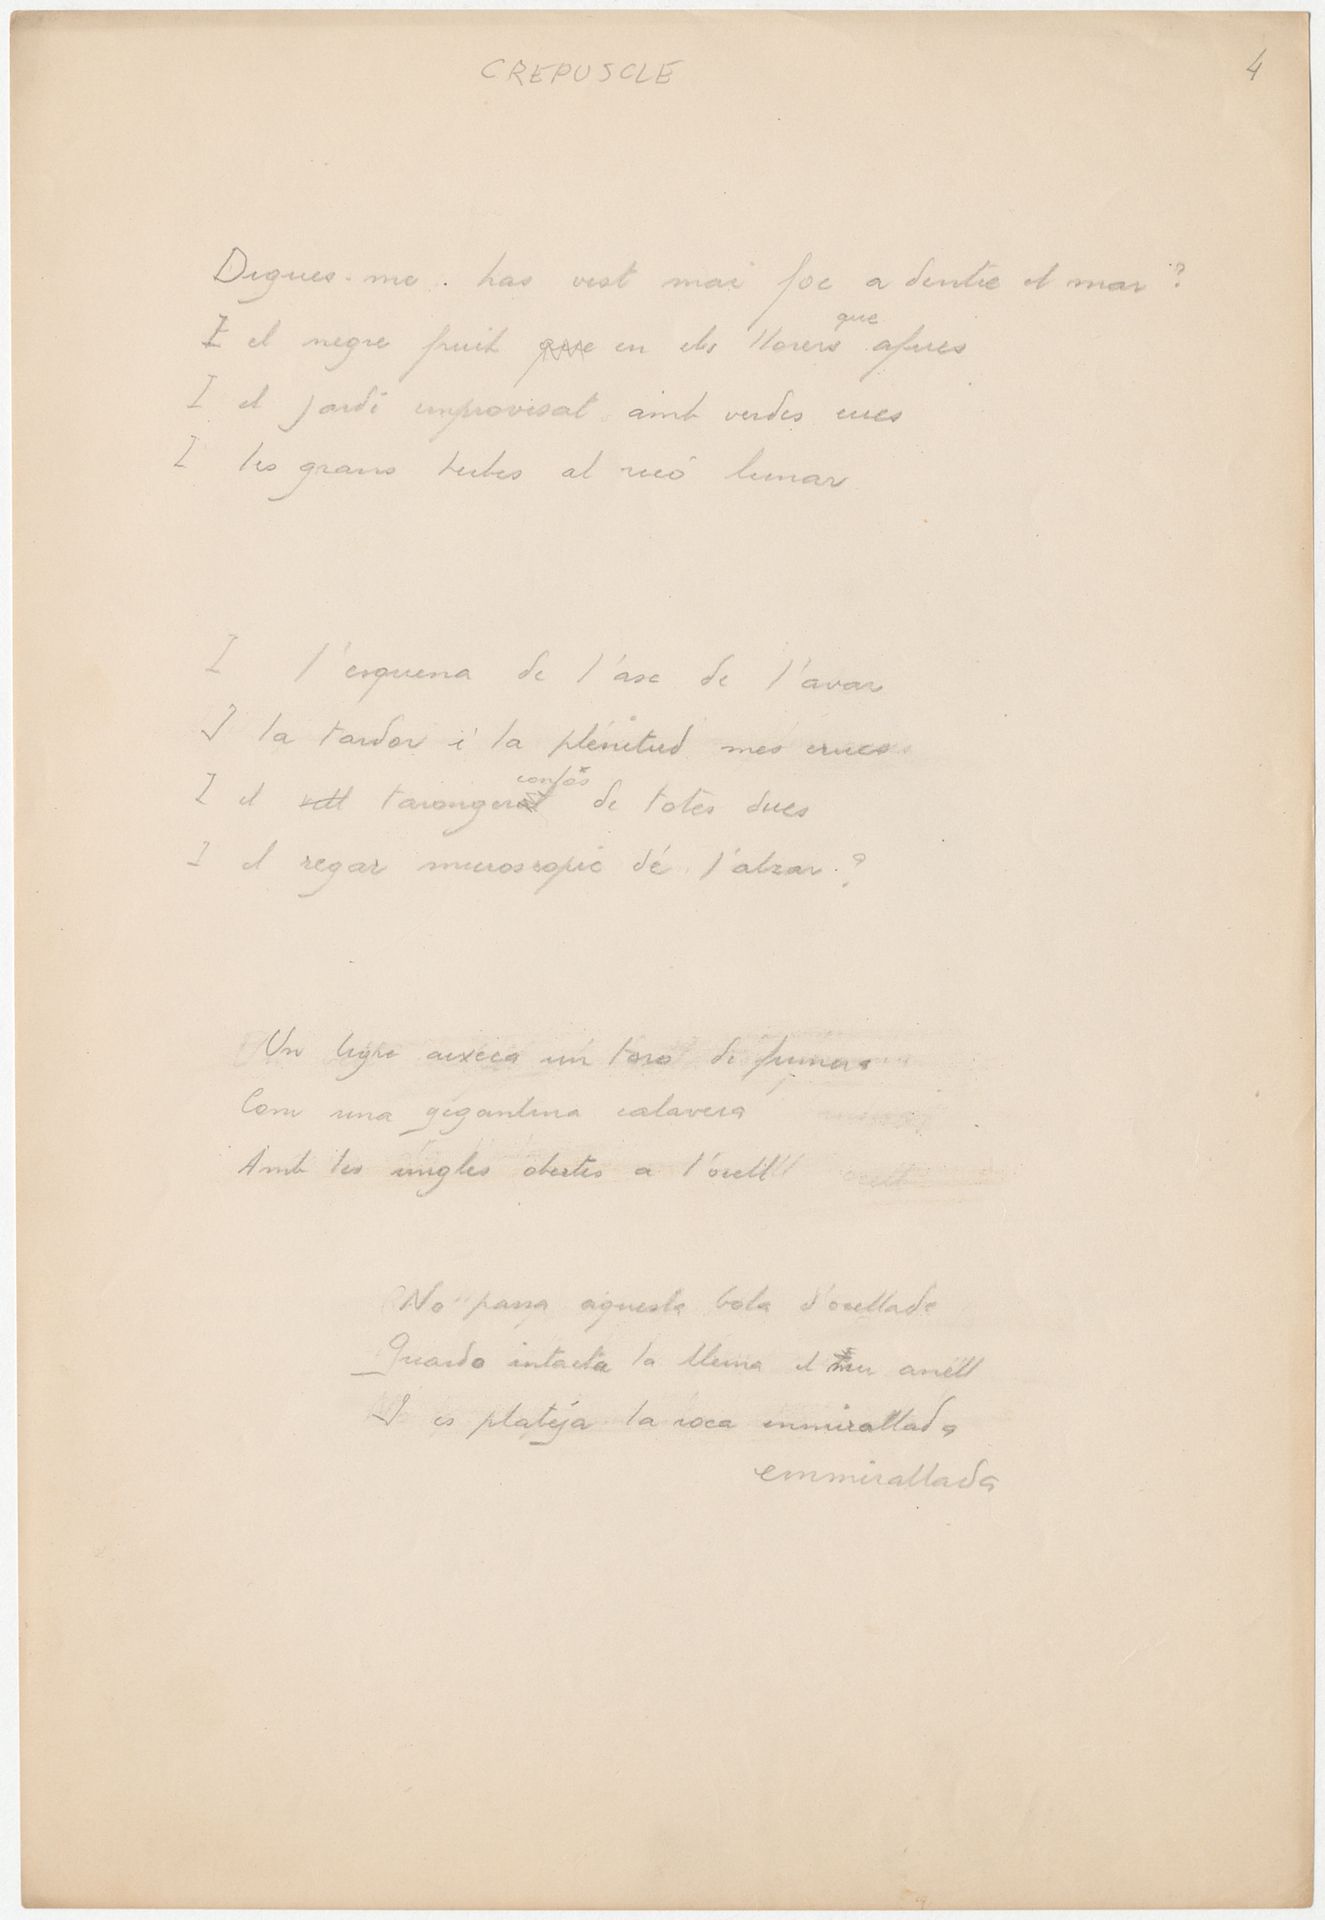 CREPUSCLE
4
Digues-me . has vist mai foc a dintre el mar ?
I el negre fruit que en els llorers que afues
I el jardí improvisat amb verdes cues
I les grans herbes al racó lunar
I l'esquena de l'ase de l'avar
I la tardor i la plenitud més crues
I el vell tarongerat confós de totes dues
I el regar microscopic de l'alzar ?
Un tigre aixeca un toro de fumera
Com una gigantina calavera
Amb les ungles obertes a l'ocell
No passa aquesta bola d'ocellada
Guardo intacta la lluna el meu anell
I es plateja la roca enmirallada
emmirallada